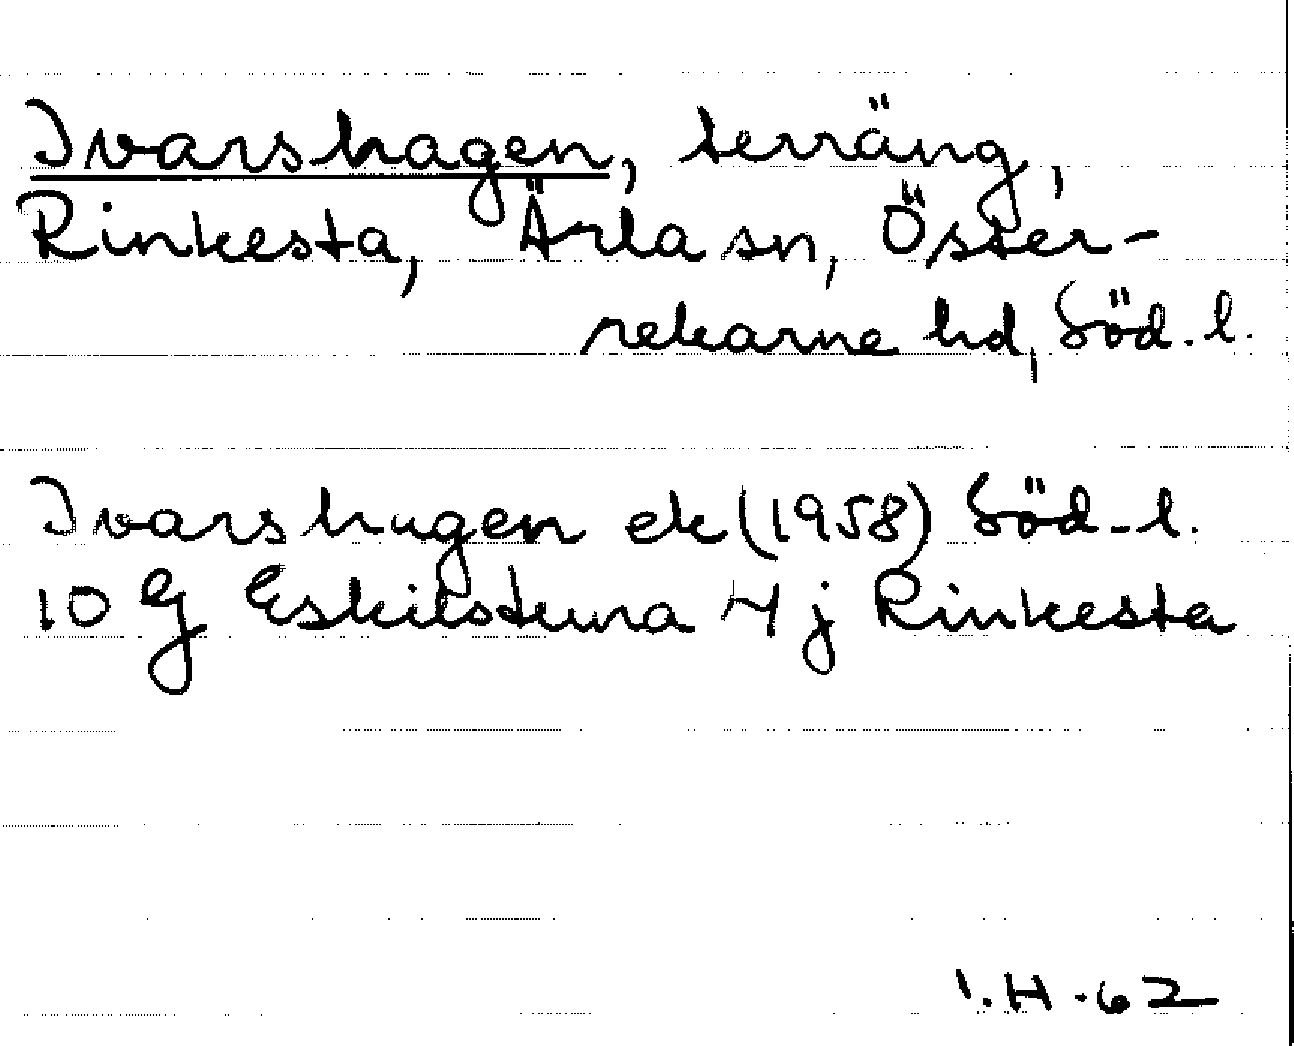 Ivarshagen, terräng,
Rinkesta, Ärla sn, Öster-
rekarne hd, Söd. l.
Ivarshagen ek (1958) Söd. l.
10 G Eskilstuna 4 j Rinkesta
I.H.62